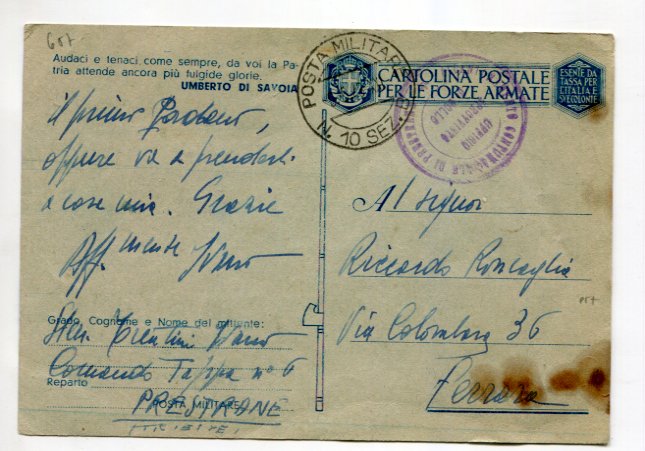 607
Audaci e tenaci come sempre, da voi la Pa-
tria attende ancora più fulgide glorie.
UMBERTO DI SAVOIA
il primo
oppure va a prenderli
a casa mia. Grazie
Aff. mente Ivano
Grado, Cognome e Nome del mittente:
Ivano
Comando Tappa n° 6
Reparto
POSTA MILITARE
PRESTRANE
(TRIESTE)
POSTA MILITARE
N. 10 SEZ. B
CARTOLINA POSTALE
PER LE FORZE ARMATE
ESENTE DA
TASSA PER
L'ITALIA E
SUE COLONIE
UFFICIO
Al signor
Riccardo Roncaglia
Via Colombara 36
Ferrara